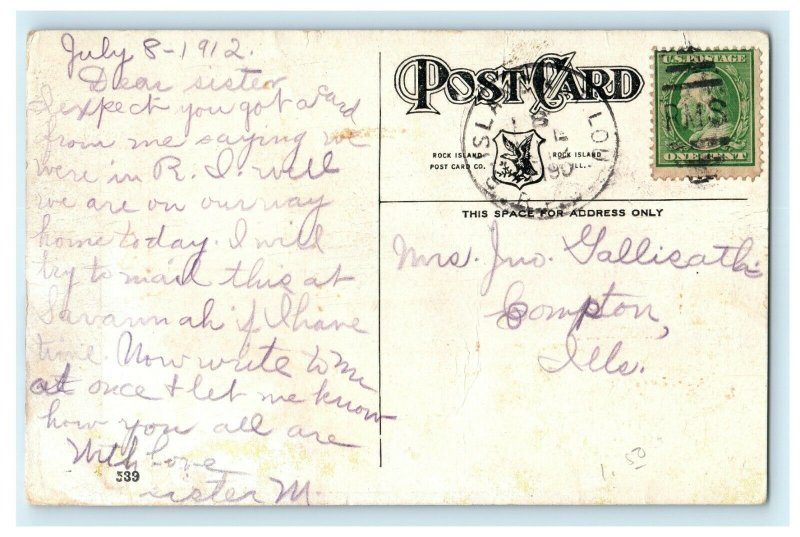 July 8-1912.
Dear sister
I expect you got a card
from me saying we
were in R. I. well
we are on our way
home today. I will
try to mail this at
Savannah if I have
time. Now write to me
at once & let me know
how you all are
With love
sister M.
539
POST CARD
ROCK ISLAND
POST CARD CO.
ROCK ISLAND
ILL.
U.S. POSTAGE
RMS
ONE CENT
THIS SPACE FOR ADDRESS ONLY
Mrs. Jno. Gallisath
Compton,
Ills.
1.50